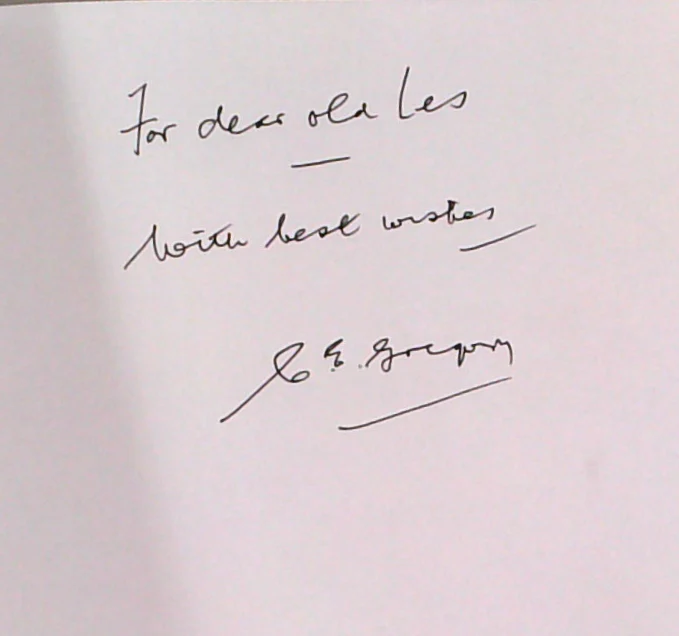 For dear old Les
With best wishes
C E. Gregory